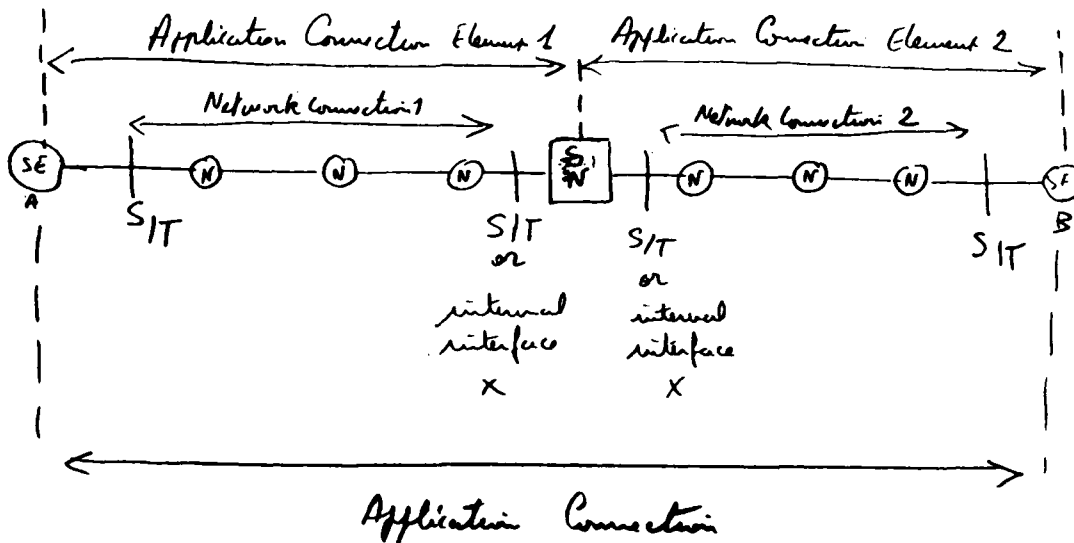 Application Connection Element 1 Application Connection Element 2
Network Connection 1 Network Connection 2
SE N N N N N N N SE
A B
S/T S/T S/T S/T
or or
internal internal
interface interface
x x
Application Connection